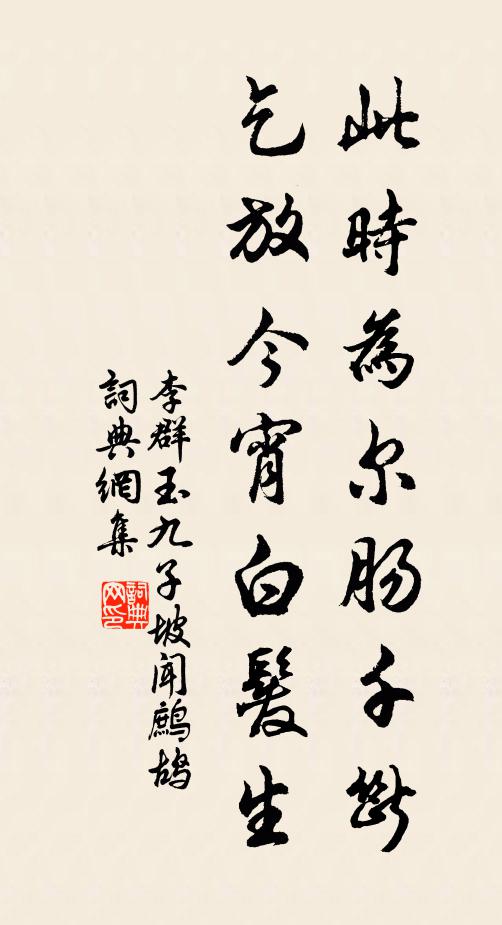 此時為尔肠千斷
乞放今宵白髮生
李群玉九子坡聞鷓鴣
詞典網集
詞典网印